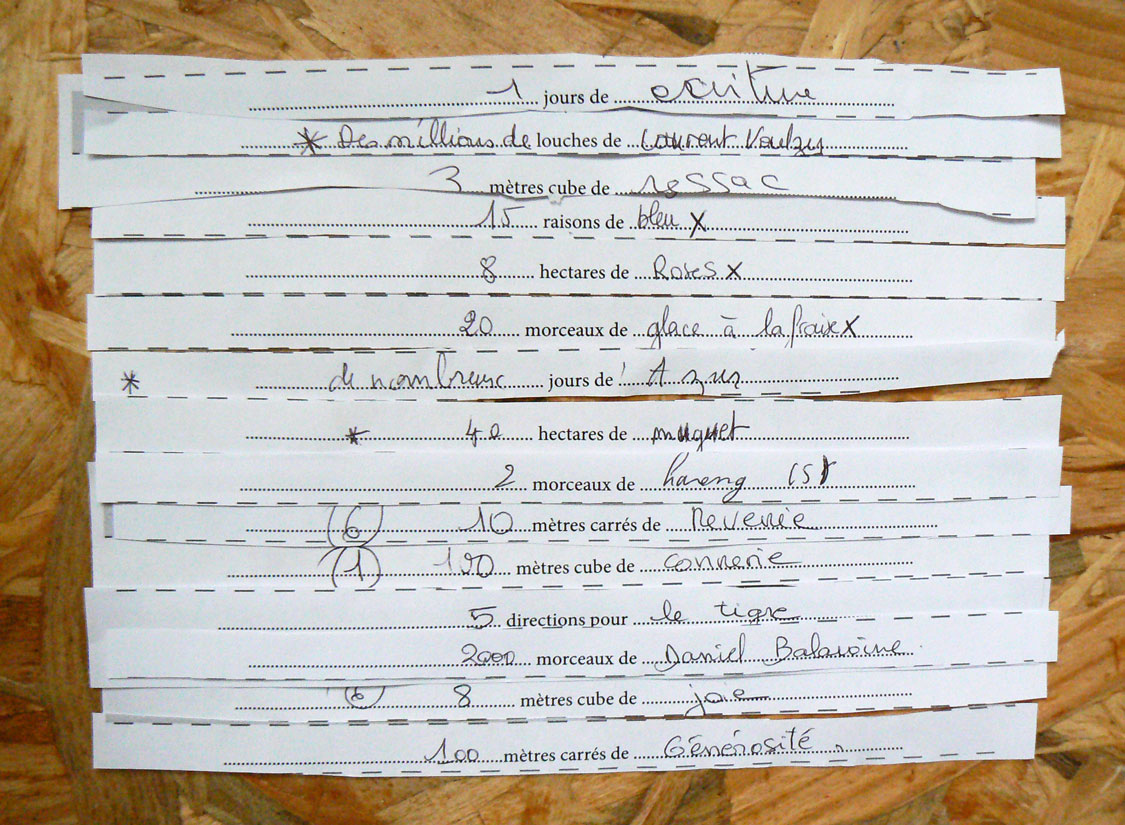 1 jours de ecriture
* Des millions de louches de Laurent Voulzy
3 mètres cube de ressac
15 raisons de bleu x
8 hectares de Roses x
20 morceaux de glace à la fraise x
* de nombreux jours de l' Azur
* 40 hectares de muguet
2 morceaux de hareng (s)
(6) 10 mètres carrés de Reverie
(1) 100 mètres cube de connerie
5 directions pour le tigre
2000 morceaux de Daniel Balavoine
(6) 8 mètres cube de joie
100 mètres carrés de Générosité